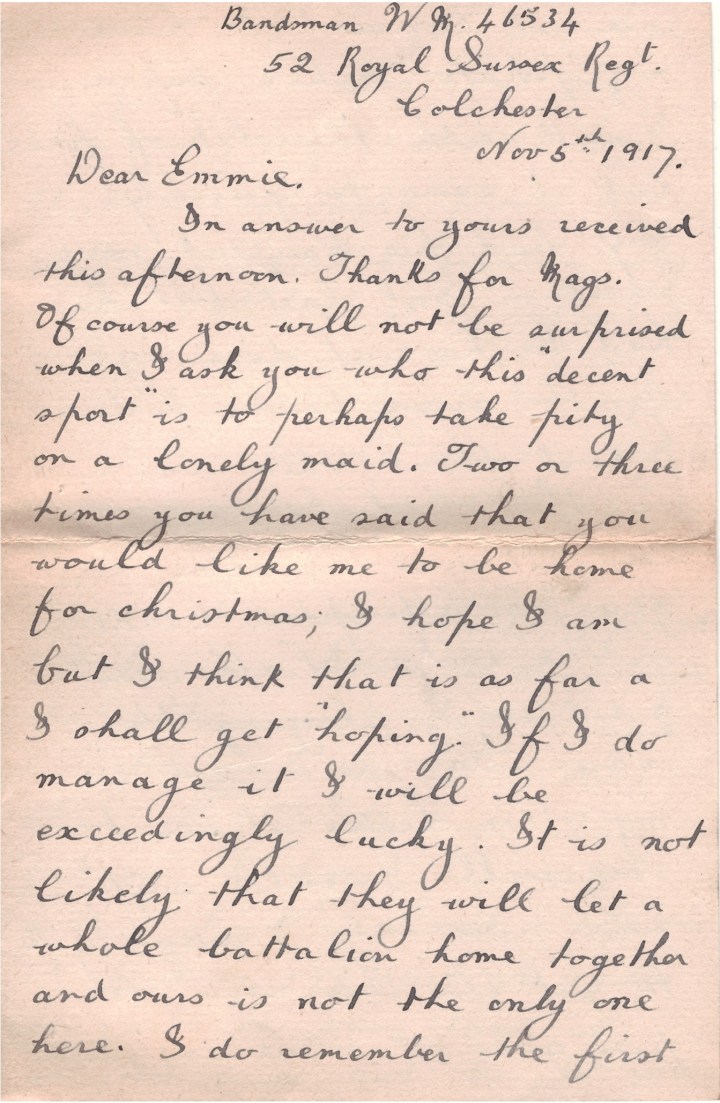 Bandsman W M. 46534
52 Royal Sussex Regt.
Colchester
Nov 5th 1917.
Dear Emmie.
In answer to yours received
this afternoon. Thanks for Mags.
Of course you will not be surprised
when I ask you who this "decent
sport" is to perhaps take pity
on a lonely maid. Two or three
times you have said that you
would like me to be home
for christmas; I hope I am
but I think that is as far a
I shall get "hoping". If I do
manage it I will be
exceedingly lucky. It is not
likely that they will let a
whole battalion home together
and ours is not the only one
here. I do remember the first